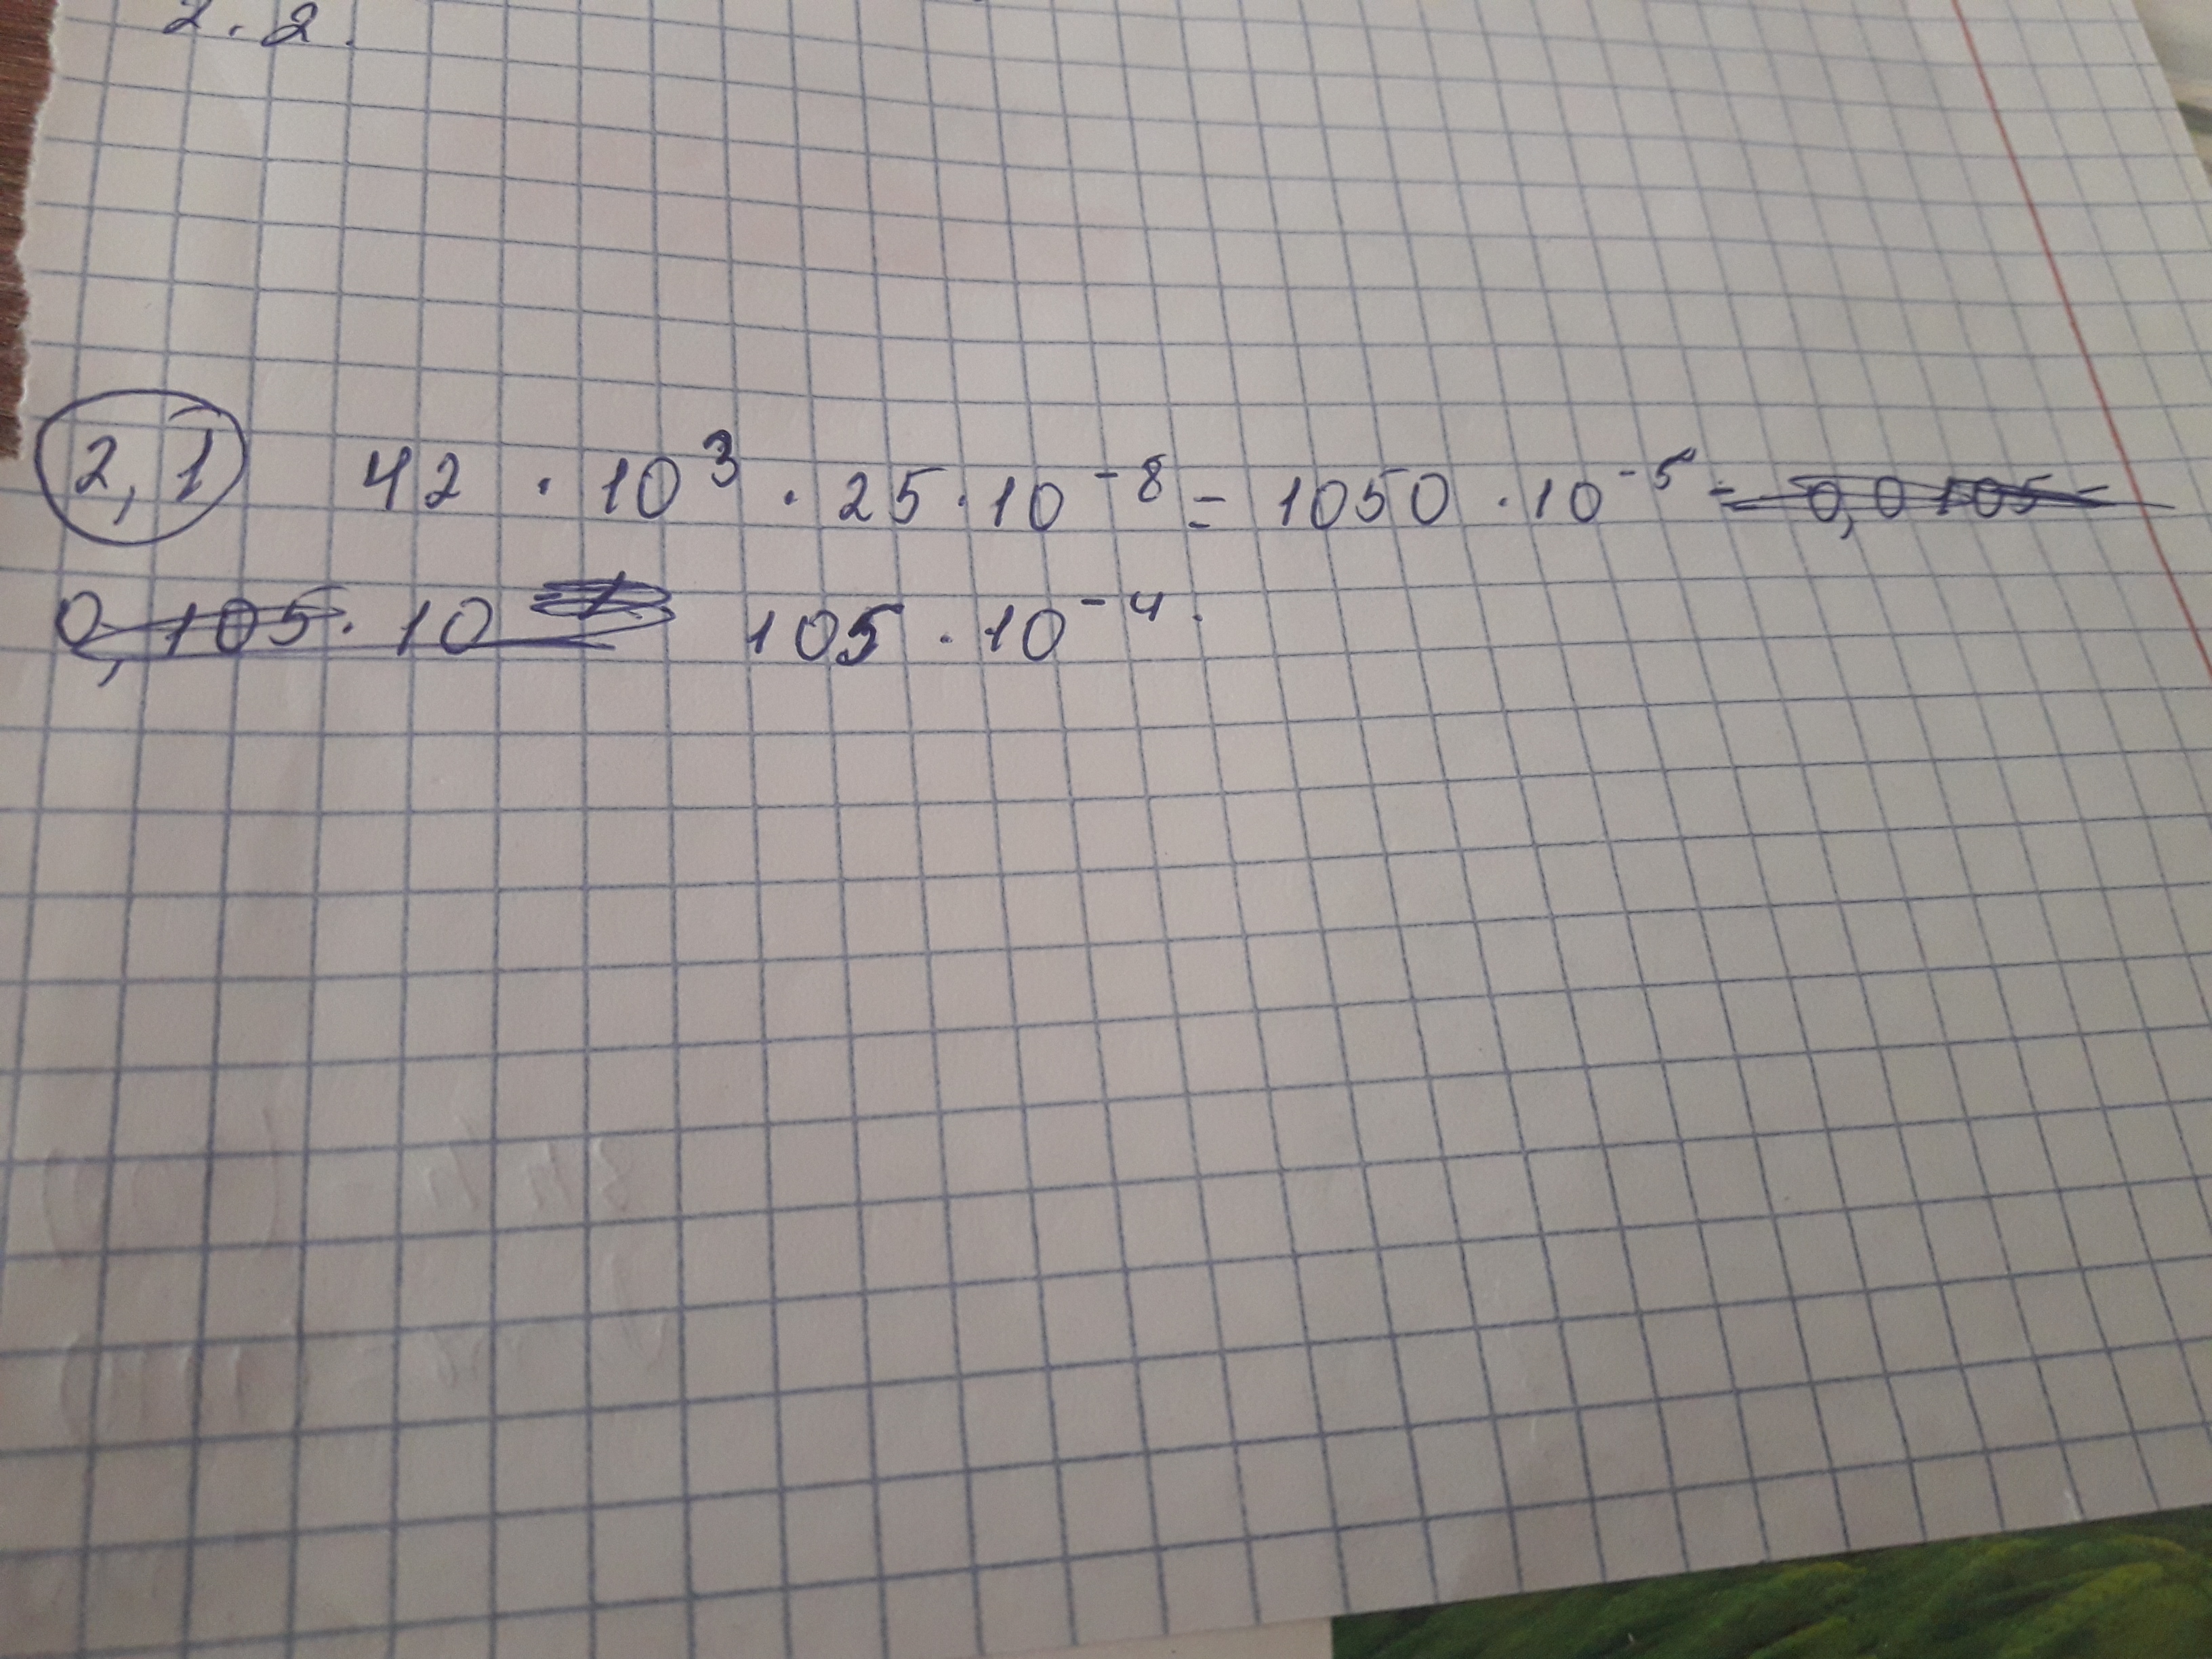 2.2.
2,1 42 · 10³ · 25 · 10⁻⁸ = 1050 · 10⁻⁵ = 0,0105
0,105 · 10 105 · 10⁻⁴.